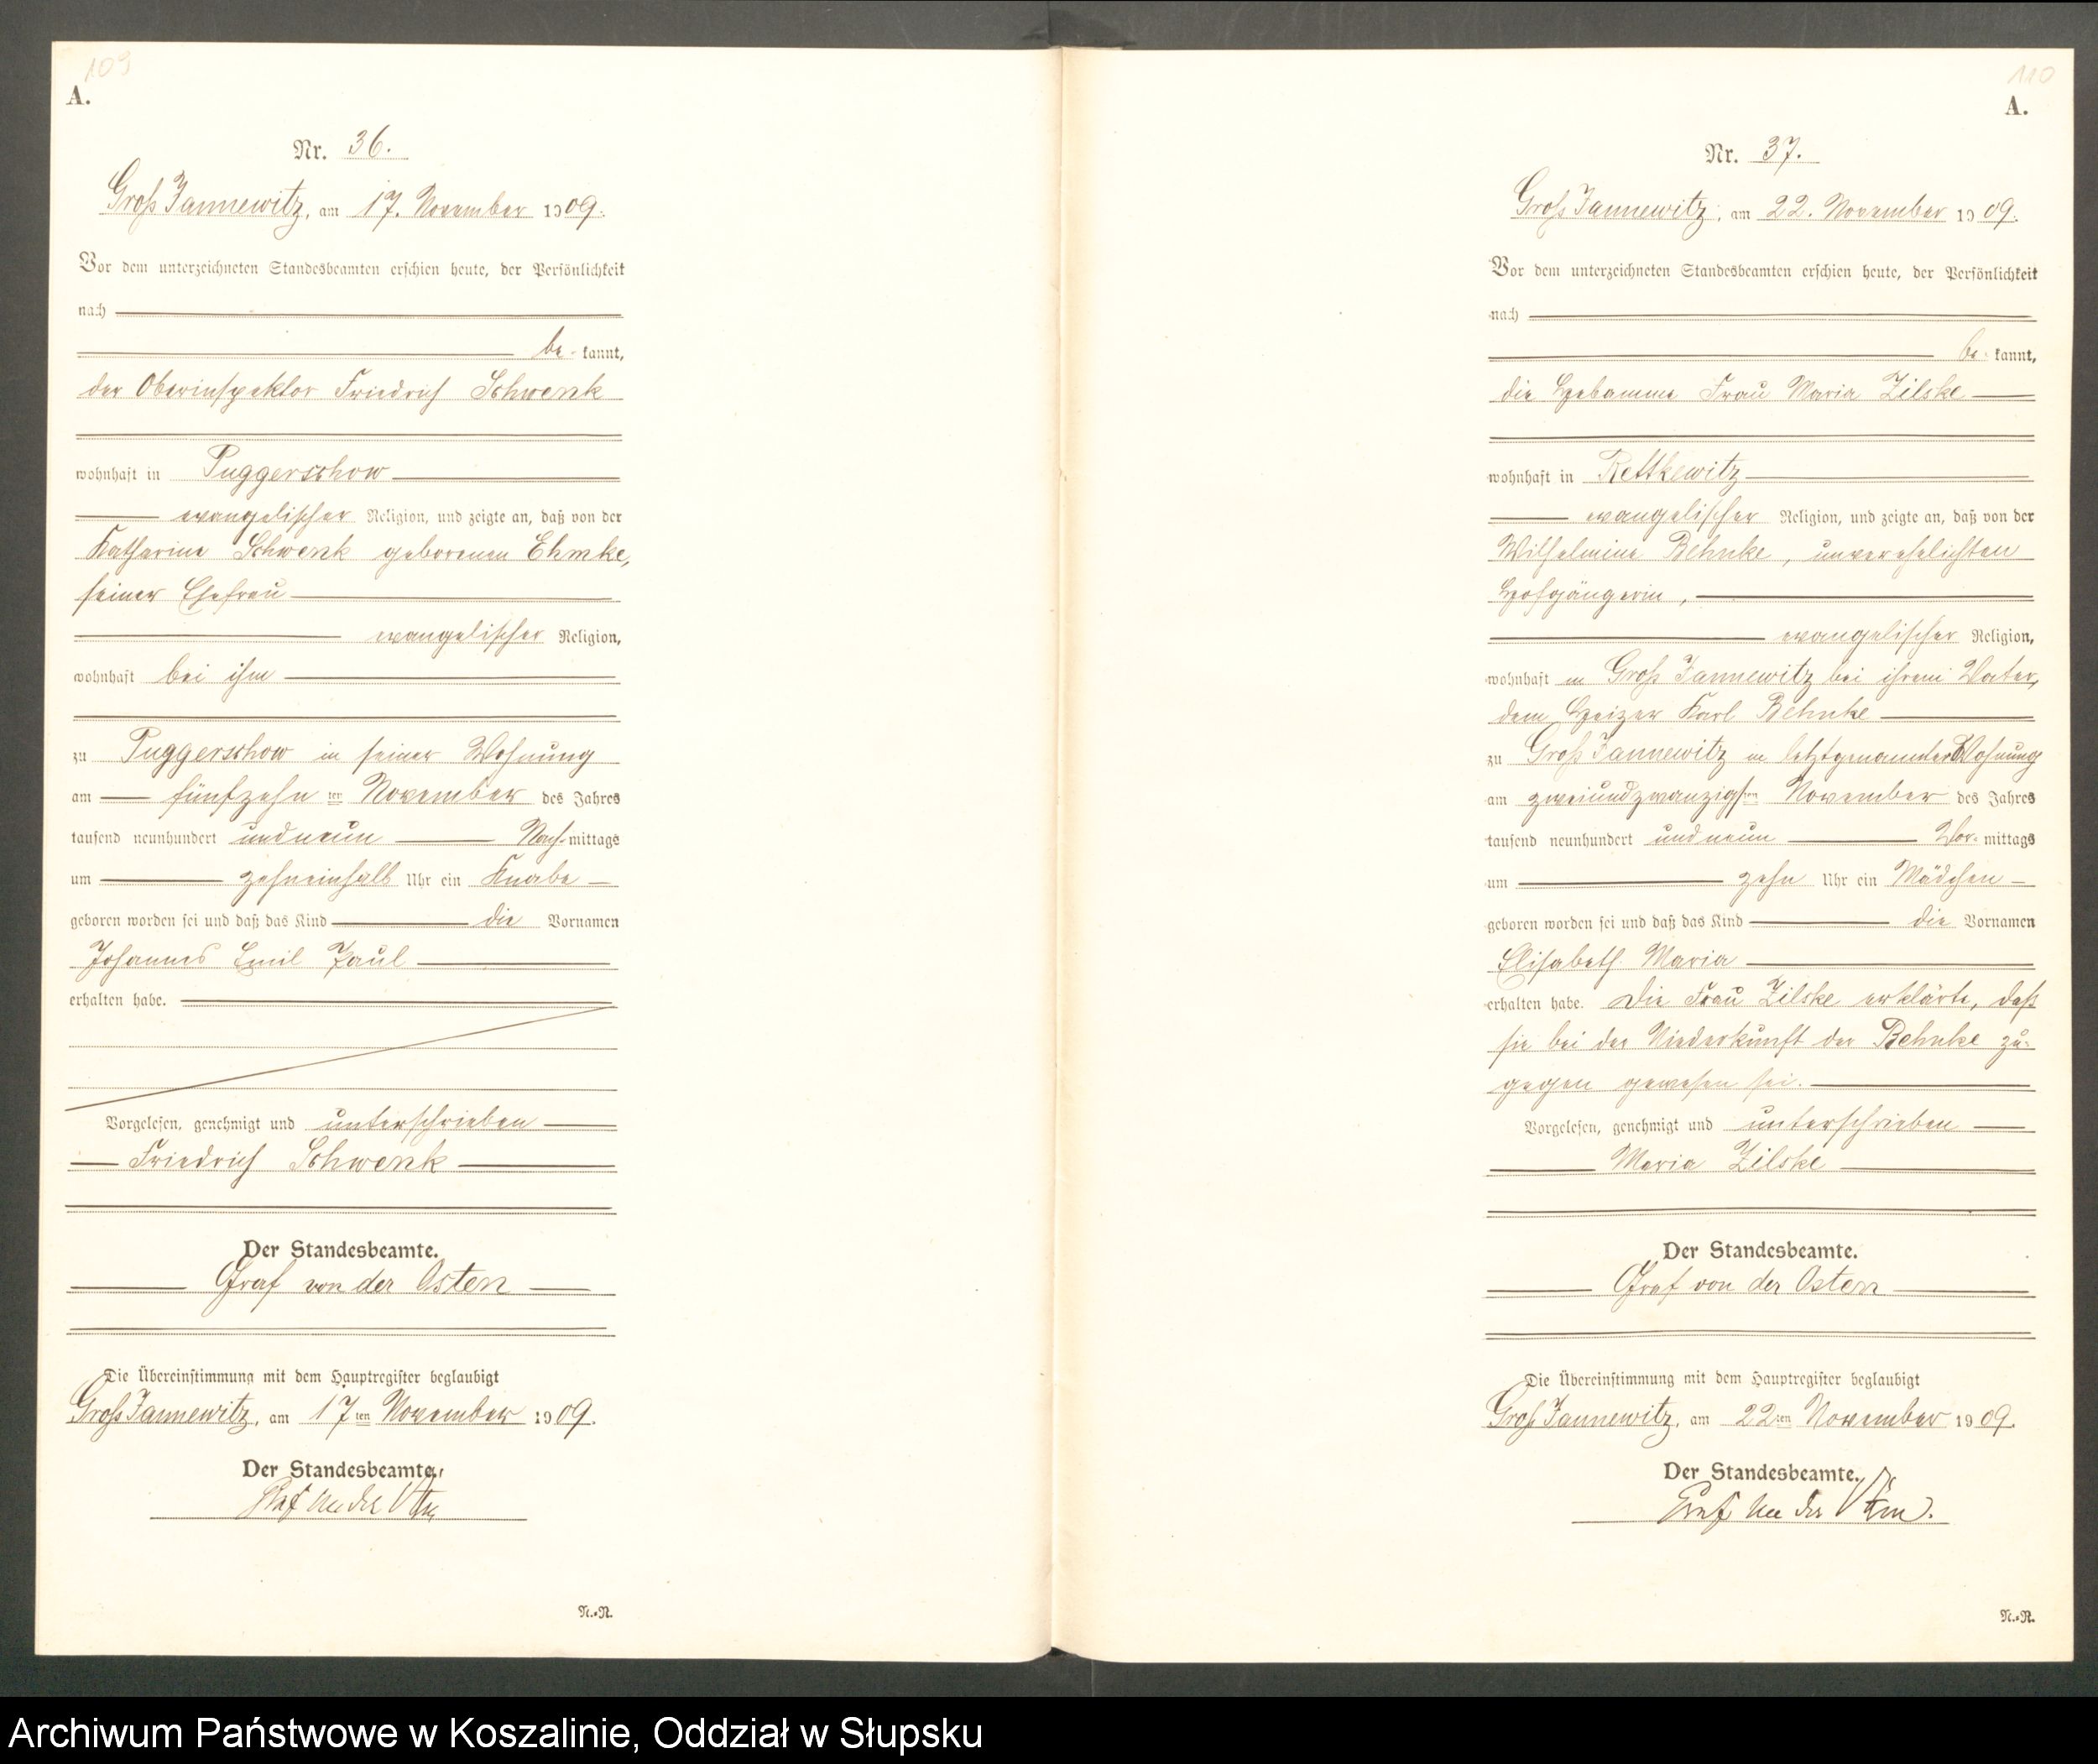 109
A.
Nr. 36.
Groß Jannewitz, am 17. November 1909.
Vor dem unterzeichneten Standesbeamten erschien heute, der Persönlichkeit
nach
be- kannt,
der Oberinspektor Friedrich Schwenk
wohnhaft in Puggerschow
evangelischer Religion, und zeigte an, daß von der
Katharine Schwenk geborenen Ehmke,
seiner Ehefrau
evangelischer Religion,
wohnhaft bei ihm
zu Puggerschow in seiner Wohnung
am fünfzehn ten November des Jahres
tausend neunhundert und neun Nach-mittags
um zehneinhalb Uhr ein Knabe
geboren worden sei und daß das Kind die Vornamen
Johannes Emil Paul
erhalten habe.
Vorgelesen, genehmigt und unterschrieben
Friedrich Schwenk
Der Standesbeamte.
Graf von der Osten
Die Übereinstimmung mit dem Hauptregister beglaubigt
Groß Jannewitz, am 17ten November 1909.
Der Standesbeamte.
Graf von der Osten
N.=R.
110
A.
Nr. 37.
Groß Jannewitz, am 22. November 1909.
Vor dem unterzeichneten Standesbeamten erschien heute, der Persönlichkeit
nach
be- kannt,
die Hebamme Frau Maria Zilske
wohnhaft in Rettkewitz
evangelischer Religion, und zeigte an, daß von der
Wilhelmine Behnke, unverehelichten
Hofgängerin,
evangelischer Religion,
wohnhaft in Groß Jannewitz bei ihrem Vater,
dem Heizer Karl Behnke
zu Groß Jannewitz in letztgenannter Wohnung
am zweiundzwanzigsten November des Jahres
tausend neunhundert und neun Vor- mittags
um zehn Uhr ein Mädchen
geboren worden sei und daß das Kind die Vornamen
Elisabeth Maria
erhalten habe. Die Frau Zilske erklärte, daß
sie bei der Niederkunft der Behnke zu-
gegen gewesen sei.
Vorgelesen, genehmigt und unterschrieben
Maria Zilske
Der Standesbeamte.
Graf von der Osten
Die Übereinstimmung mit dem Hauptregister beglaubigt
Groß Jannewitz, am 22ten November 1909.
Der Standesbeamte.
Graf von der Osten.
N.=R.
Archiwum Państwowe w Koszalinie, Oddział w Słupsku